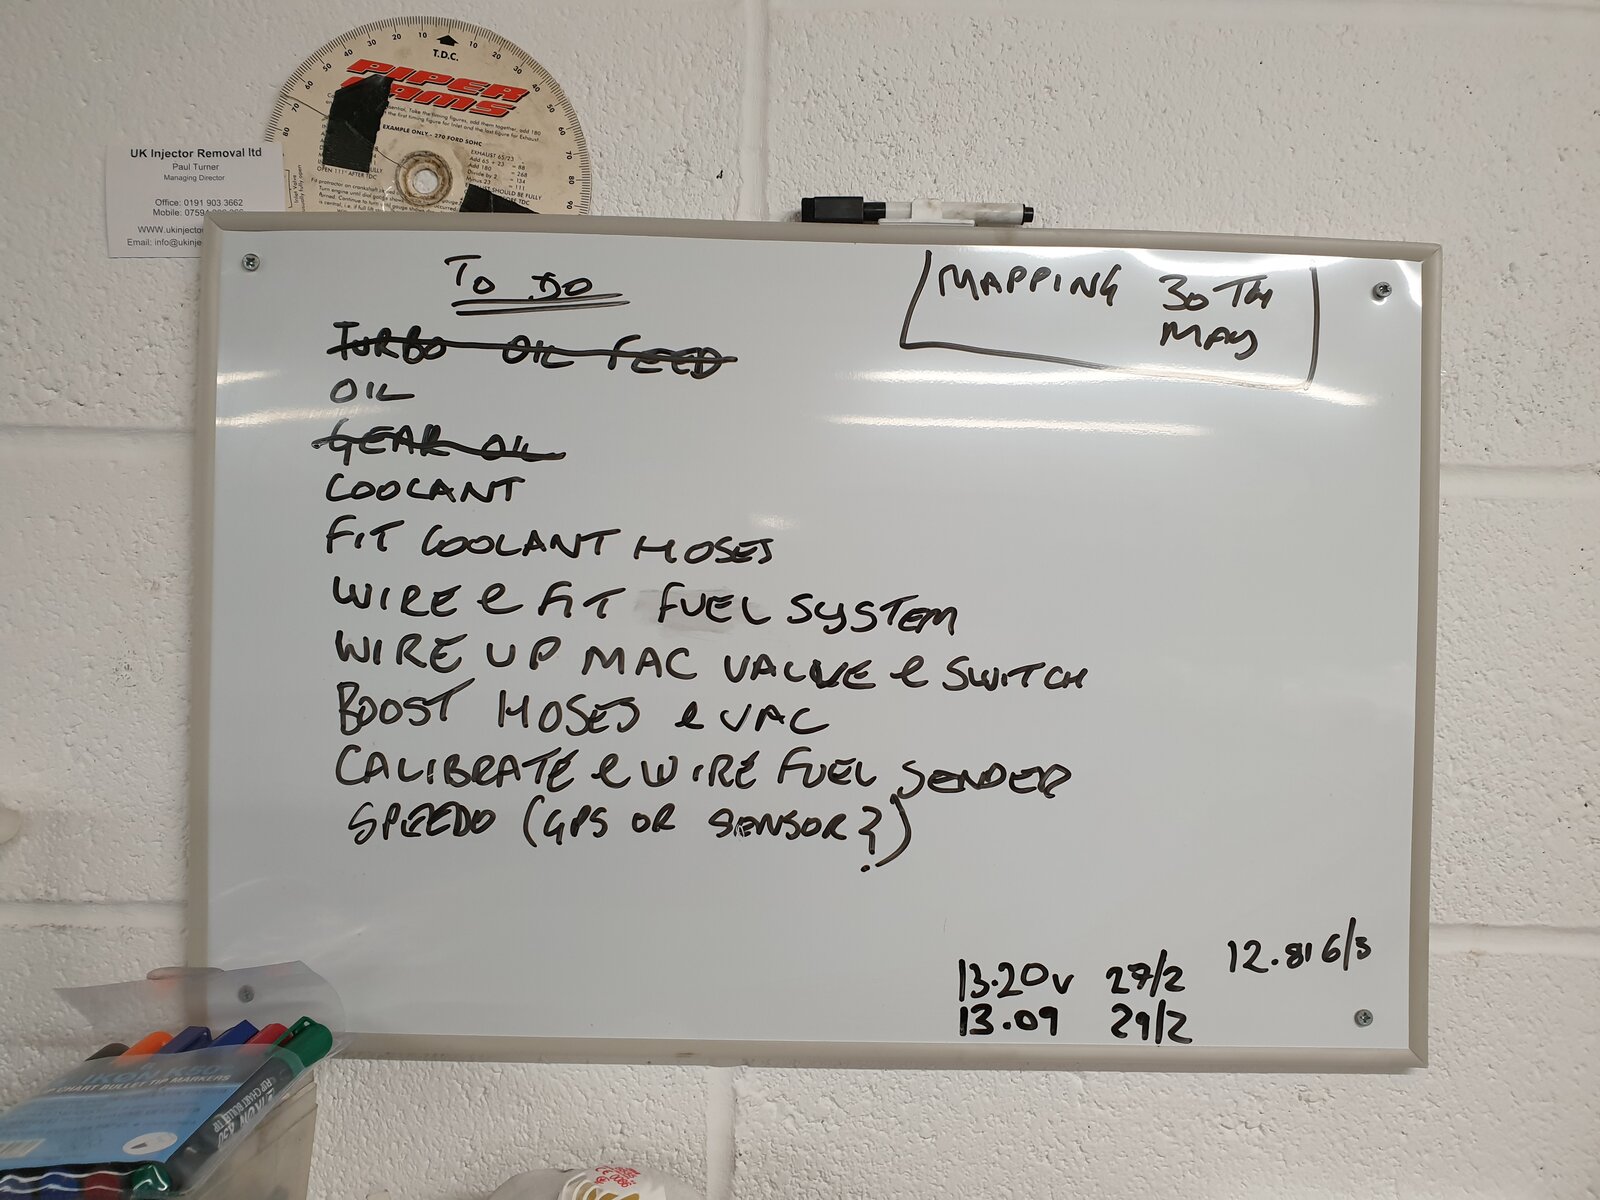 T.D.C.
PIPER
CAMS
EXAMPLE ONLY - 270 FORD SOHC
EXHAUST 65/23
Add 65 + 23 - 88
Add 180 - 268
Divide by 2 - 134
Minus 23 - 111
UK Injector Removal ltd
Paul Turner
Managing Director
Office: 0191 903 3662
Mobile: 0759
WWW.ukinjecto
Email: info@ukinje
TO DO
TURBO OIL FEED
OIL
GEAR OIL
COOLANT
FIT COOLANT HOSES
WIRE & FIT FUEL SYSTEM
WIRE UP MAC VALVE & SWITCH
BOOST HOSES & VAC
CALIBRATE & WIRE FUEL SENDER
SPEEDO (GPS OR SENSOR?)
MAPPING 30TH
MAY
13.20v 27/2
13.09 29/2
12.81 6/3
CHART BULLET TIP MARKERS